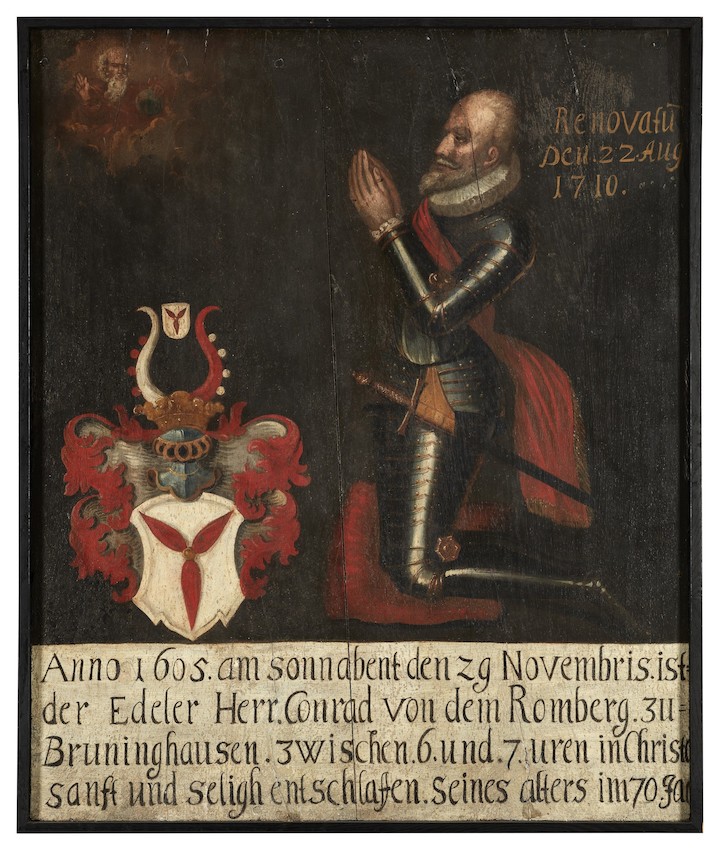 Renovatū
Den. 22 Aug
1710.
Anno 1605. am sonnabent den 29 Novembris. ist
der Edeler Herr. Conrad von dem Romberg. zu-
Bruninghausen. zwischen. 6. und. 7. uren in Christo
sanft und seligh entschlaffen. Seines alters im 70. Jar